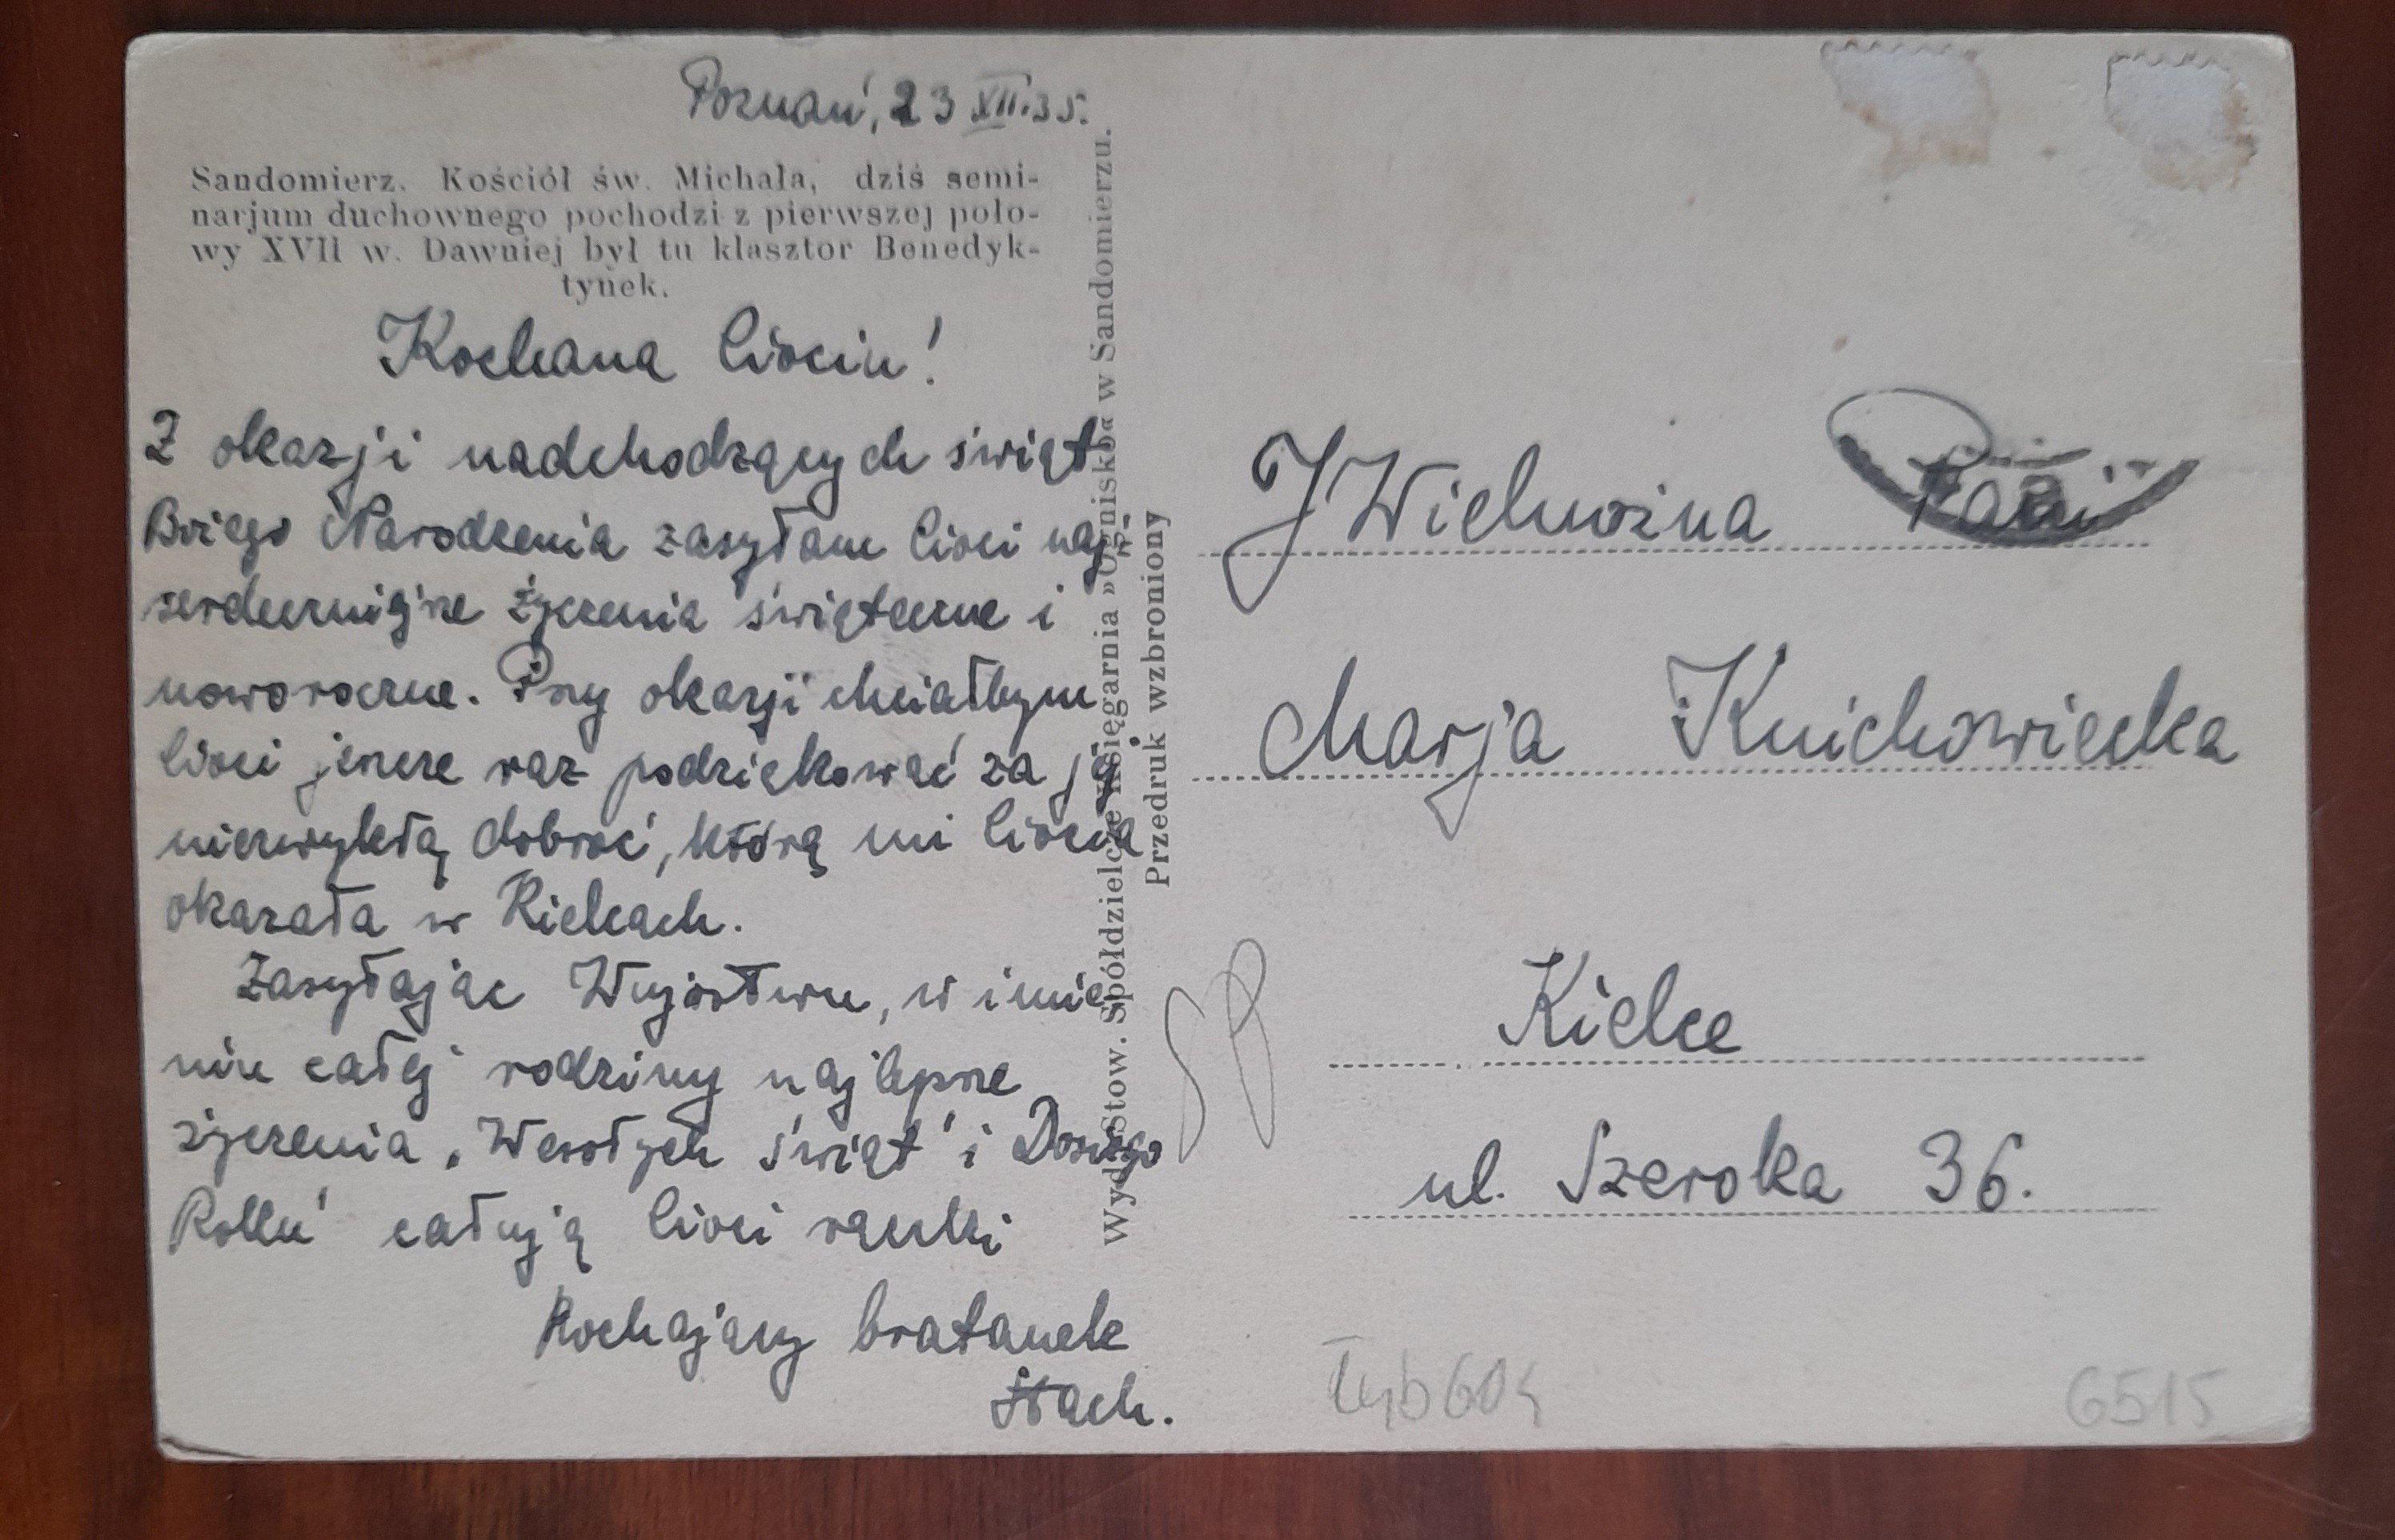 Poznań, 23 XII.35.
Sandomierz. Kościół św. Michała, dziś semi-
narjum duchownego pochodzi z pierwszej poło-
wy XVII w. Dawniej był tu klasztor Benedyk-
tynek.
Kochana Ciociu!
Z okazji nadchodzących świąt
Bożego Narodzenia zasyłam Cioci naj-
serdeczniejsze życzenia świąteczne i
noworoczne. Przy okazji chciałbym
Cioci jeszcze raz podziękować za jej
niezwykłą dobroć, którą mi Ciocia
okazała w Kielcach.
Zasyłając Wujostwu, w imie-
niu całej rodziny najlepsze
życzenia „Wesołych świąt" i Dosiego
Roku" całują Cioci rączki
Kochający bratanek
Stach.
Wyd. Stow. Spółdzielcze Księgarnia »Ognisko« w Sandomierzu.
Przedruk wzbroniony
JWielmożna Pani
Marja Knichowiecka
Kielce
ul. Szeroka 36.
6515